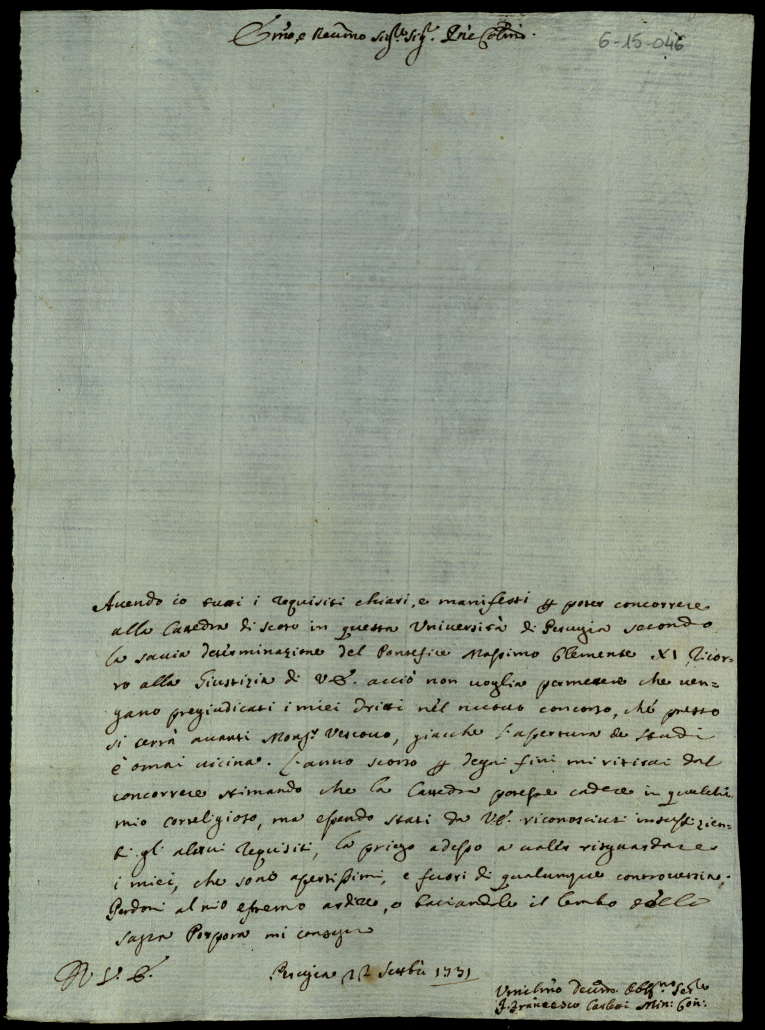 Emo, e Revmo Sigre Sigr. Pne Colmo.
6-15-046
Avendo io tutti i requisiti chiari, e manifesti per poter concorrere
alla Catedra di Scoto in questa Università di Perugia secondo
la savia determinazione del Pontefice Massimo Clemente XI, Ricor=
ro alla Giustizia di V.E. acciò non voglia permettere che ven=
gano pregiudicati i miei dritti nel nuovo concorso, che presto
si terrà avanti Monsr Vescovo, giacche l'apertura de Studi
è omai vicina. L'anno scorso per degni fini mi ritirai dal
concorrere stimando che la Catedra potesse cadere in qualche
mio correligioso, ma essendo stati da V.E. riconosciuti insuffizien=
ti gl'altrui requisiti, la priego adesso a voller risguardare
i miei, che sono apertissimi, e fuori di qualunque controversia.
Perdoni al mio estremo ardire, e baciandole il lembo della
Sagra Porpora mi consegro
Di V. E.
Perugia 22 Settbre 1731
Umilmo Devmo Obbmo Serre
F. Francesco Min: Con: